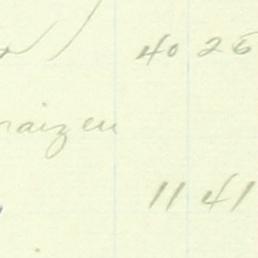 40 26
raizen
11 41